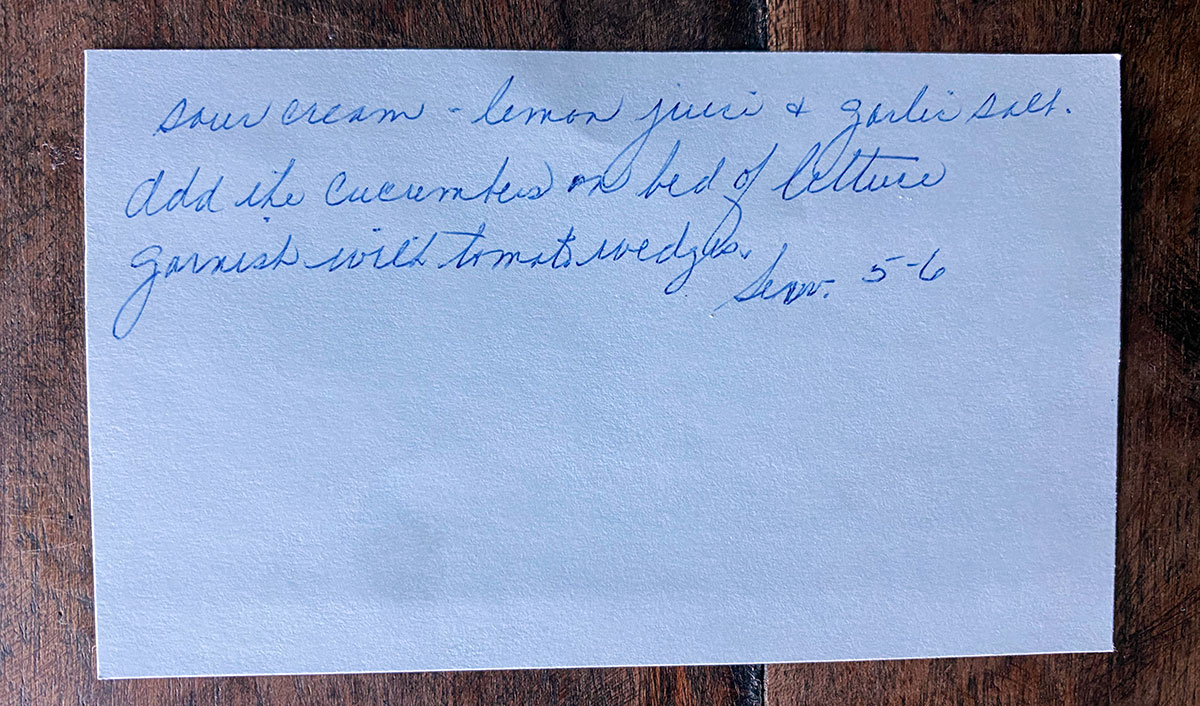 sour cream - lemon juice & garlic salt.
Add the cucumbers on bed of lettuce
garnish with tomato wedges.
Serv. 5-6